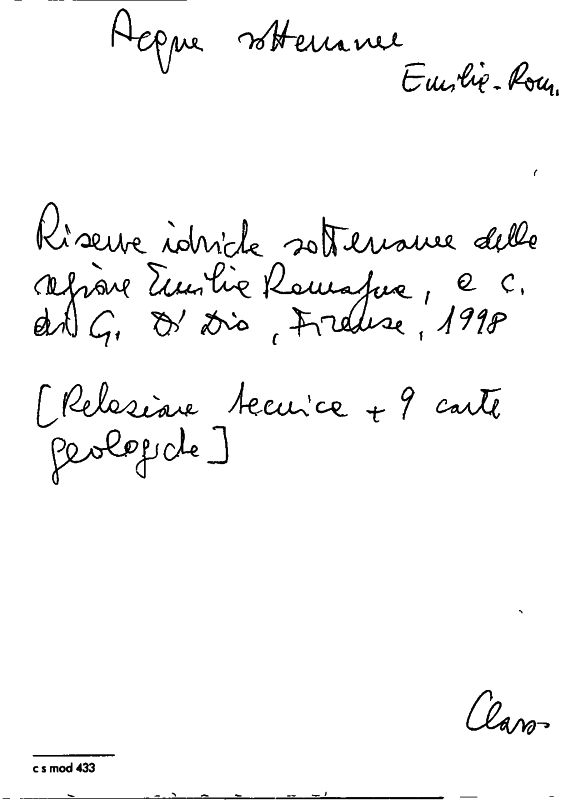 Acque sotterranee
Emilia-Rom.
Riserve idriche sotterranee della
regione Emilia Romagna, a c.
di G. Di Dio, Firenze, 1998
[Relazione tecnica + 9 carte
geologiche]
Class
c s mod 433